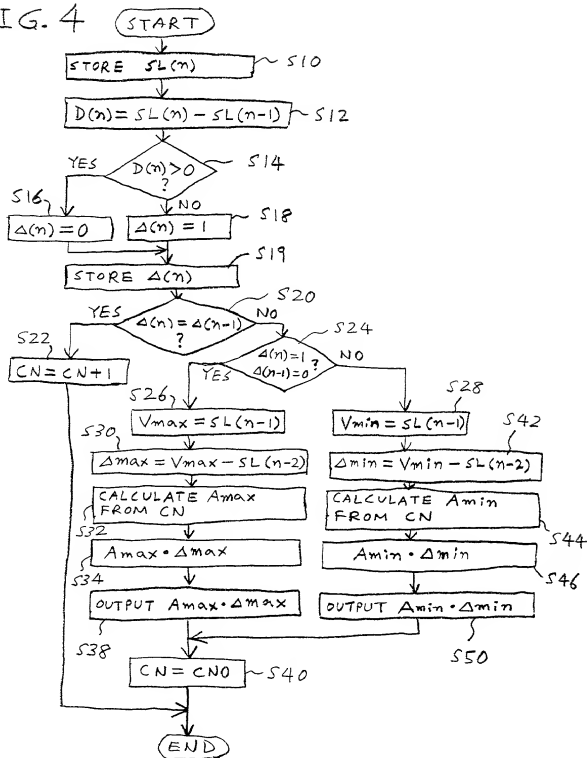 IG. 4
START
STORE SL(n)
S10
D(n) = SL(n) - SL(n-1)
S12
D(n)>0
?
S14
YES
NO
S16
Δ(n) = 0
Δ(n) = 1
S18
STORE Δ(n)
S19
Δ(n) = Δ(n-1)
?
S20
YES
NO
S22
CN = CN+1
Δ(n)=1
Δ(n-1)=0
?
S24
YES
NO
S26
Vmax = SL(n-1)
Vmin = SL(n-1)
S28
S30
Δmax = Vmax - SL(n-2)
Δmin = Vmin - SL(n-2)
S42
CALCULATE Amax
FROM CN
S32
CALCULATE Amin
FROM CN
S44
Amax • Δmax
S34
Amin • Δmin
S46
OUTPUT Amax • Δmax
S38
OUTPUT Amin • Δmin
S50
CN = CN0
S40
END